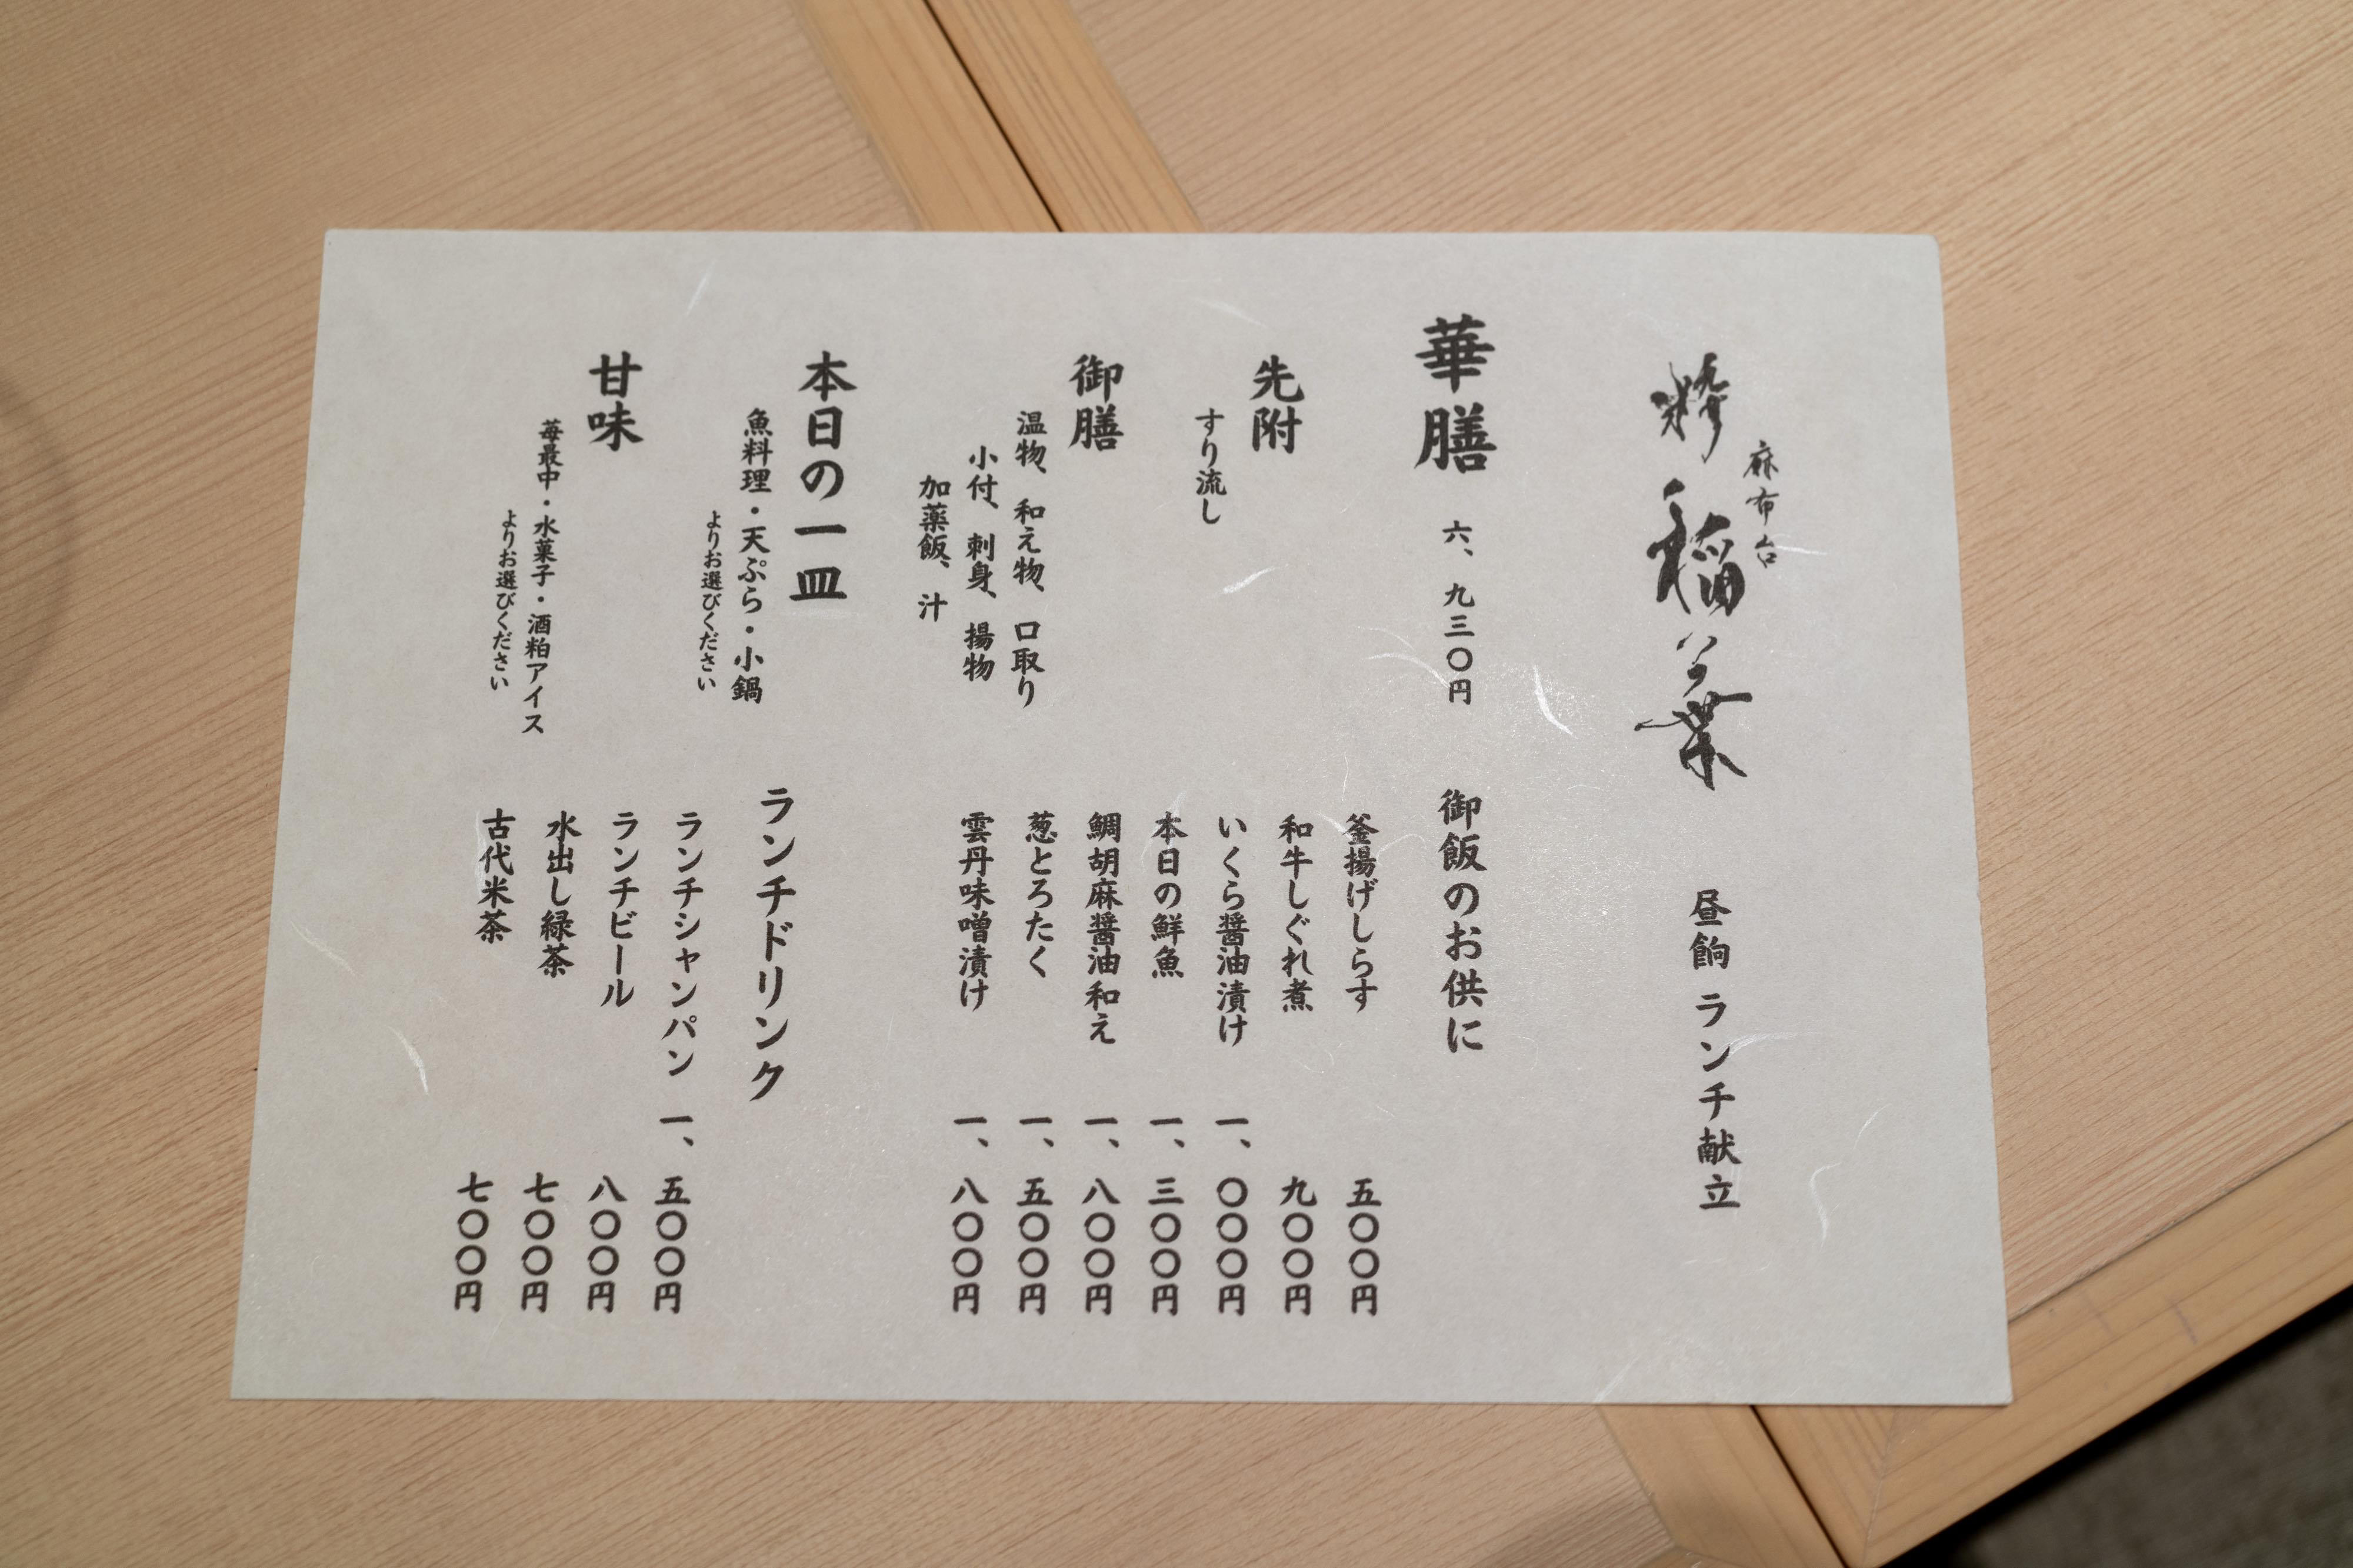 麻布台
粋 稲葉
昼餉 ランチ献立
華膳 六、九三〇円
先附
すり流し
御膳
温物、和え物、口取り
小付、刺身、揚物
加薬飯、汁
本日の一皿
魚料理・天ぷら・小鍋
よりお選びください
甘味
苺最中・水菓子・酒粕アイス
よりお選びください
御飯のお供に
釜揚げしらす 五〇〇円
和牛しぐれ煮 九〇〇円
いくら醤油漬け 一、〇〇〇円
本日の鮮魚 一、三〇〇円
鯛胡麻醤油和え 一、八〇〇円
葱とろたく 一、五〇〇円
雲丹味噌漬け 一、八〇〇円
ランチドリンク
ランチシャンパン 一、五〇〇円
ランチビール 八〇〇円
水出し緑茶 七〇〇円
古代米茶 七〇〇円